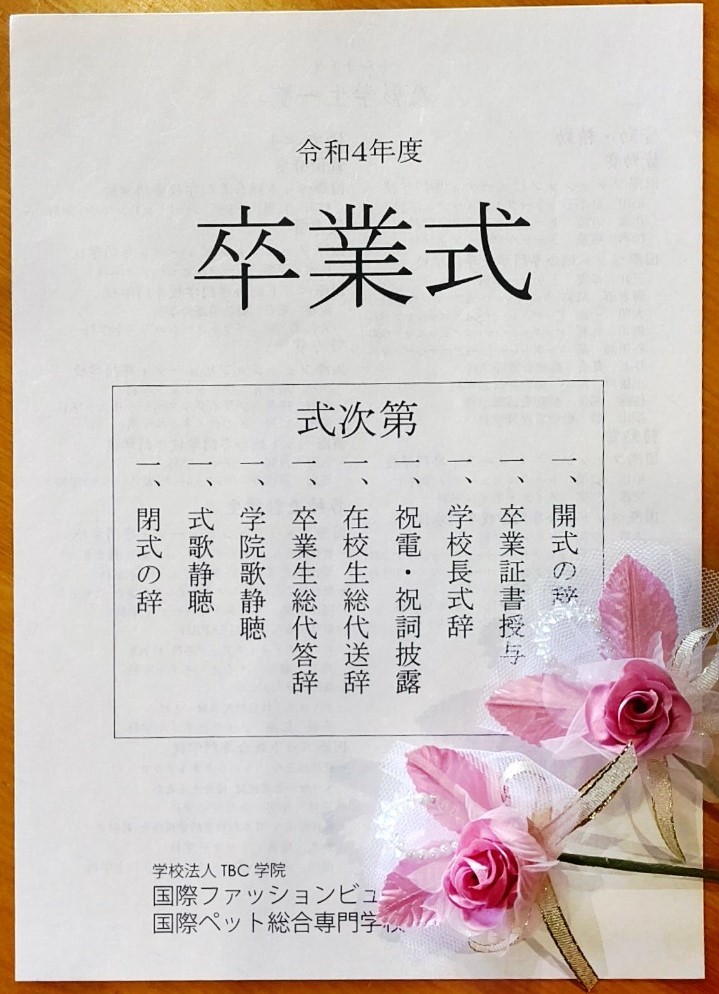 令和4年度
卒業式
式次第
一、開式の辞
一、卒業証書授与
一、学校長式辞
一、祝電・祝詞披露
一、在校生総代送辞
一、卒業生総代答辞
一、学院歌静聴
一、式歌静聴
一、閉式の辞
学校法人 TBC 学院
国際ファッションビュ
国際ペット総合専門学校